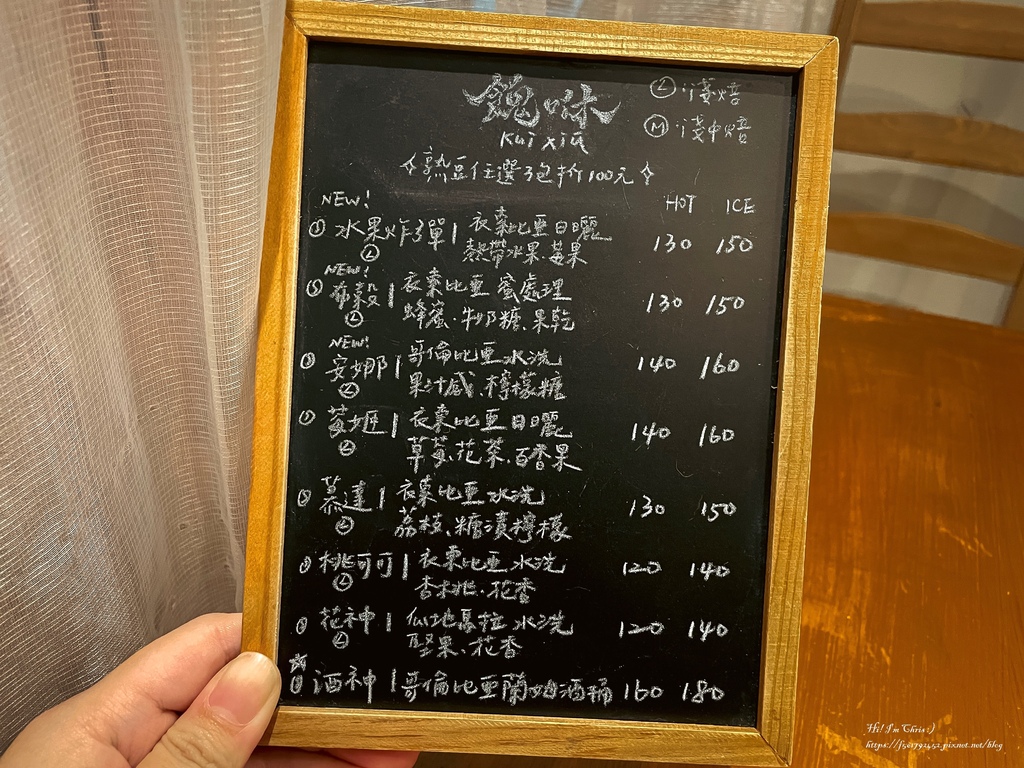 餽咻
Kui xiu
Ⓛ 淺焙
Ⓜ 淺中焙
熟豆任選3包折100元
NEW! HOT ICE
水果炸彈 | 衣索比亞日曬 130 150
Ⓛ 熱帶水果.莓果
NEW!
衣索比亞 蜜處理 130 150
Ⓛ 蜂蜜.牛奶糖.果乾
NEW!
安娜 | 哥倫比亞水洗 140 160
Ⓛ 果汁感.檸檬糖
衣索比亞日曬 140 160
草莓.花茶.百香果
慕達 | 衣索比亞水洗 130 150
Ⓛ 荔枝、糖漬檸檬
桃可可 | 衣索比亞水洗 120 140
Ⓛ 杏桃.花香
花神 | 瓜地馬拉水洗 120 140
Ⓛ 堅果、花香
酒神 | 哥倫比亞蘭姆酒桶 160 180
Hi! I'm Chris :)